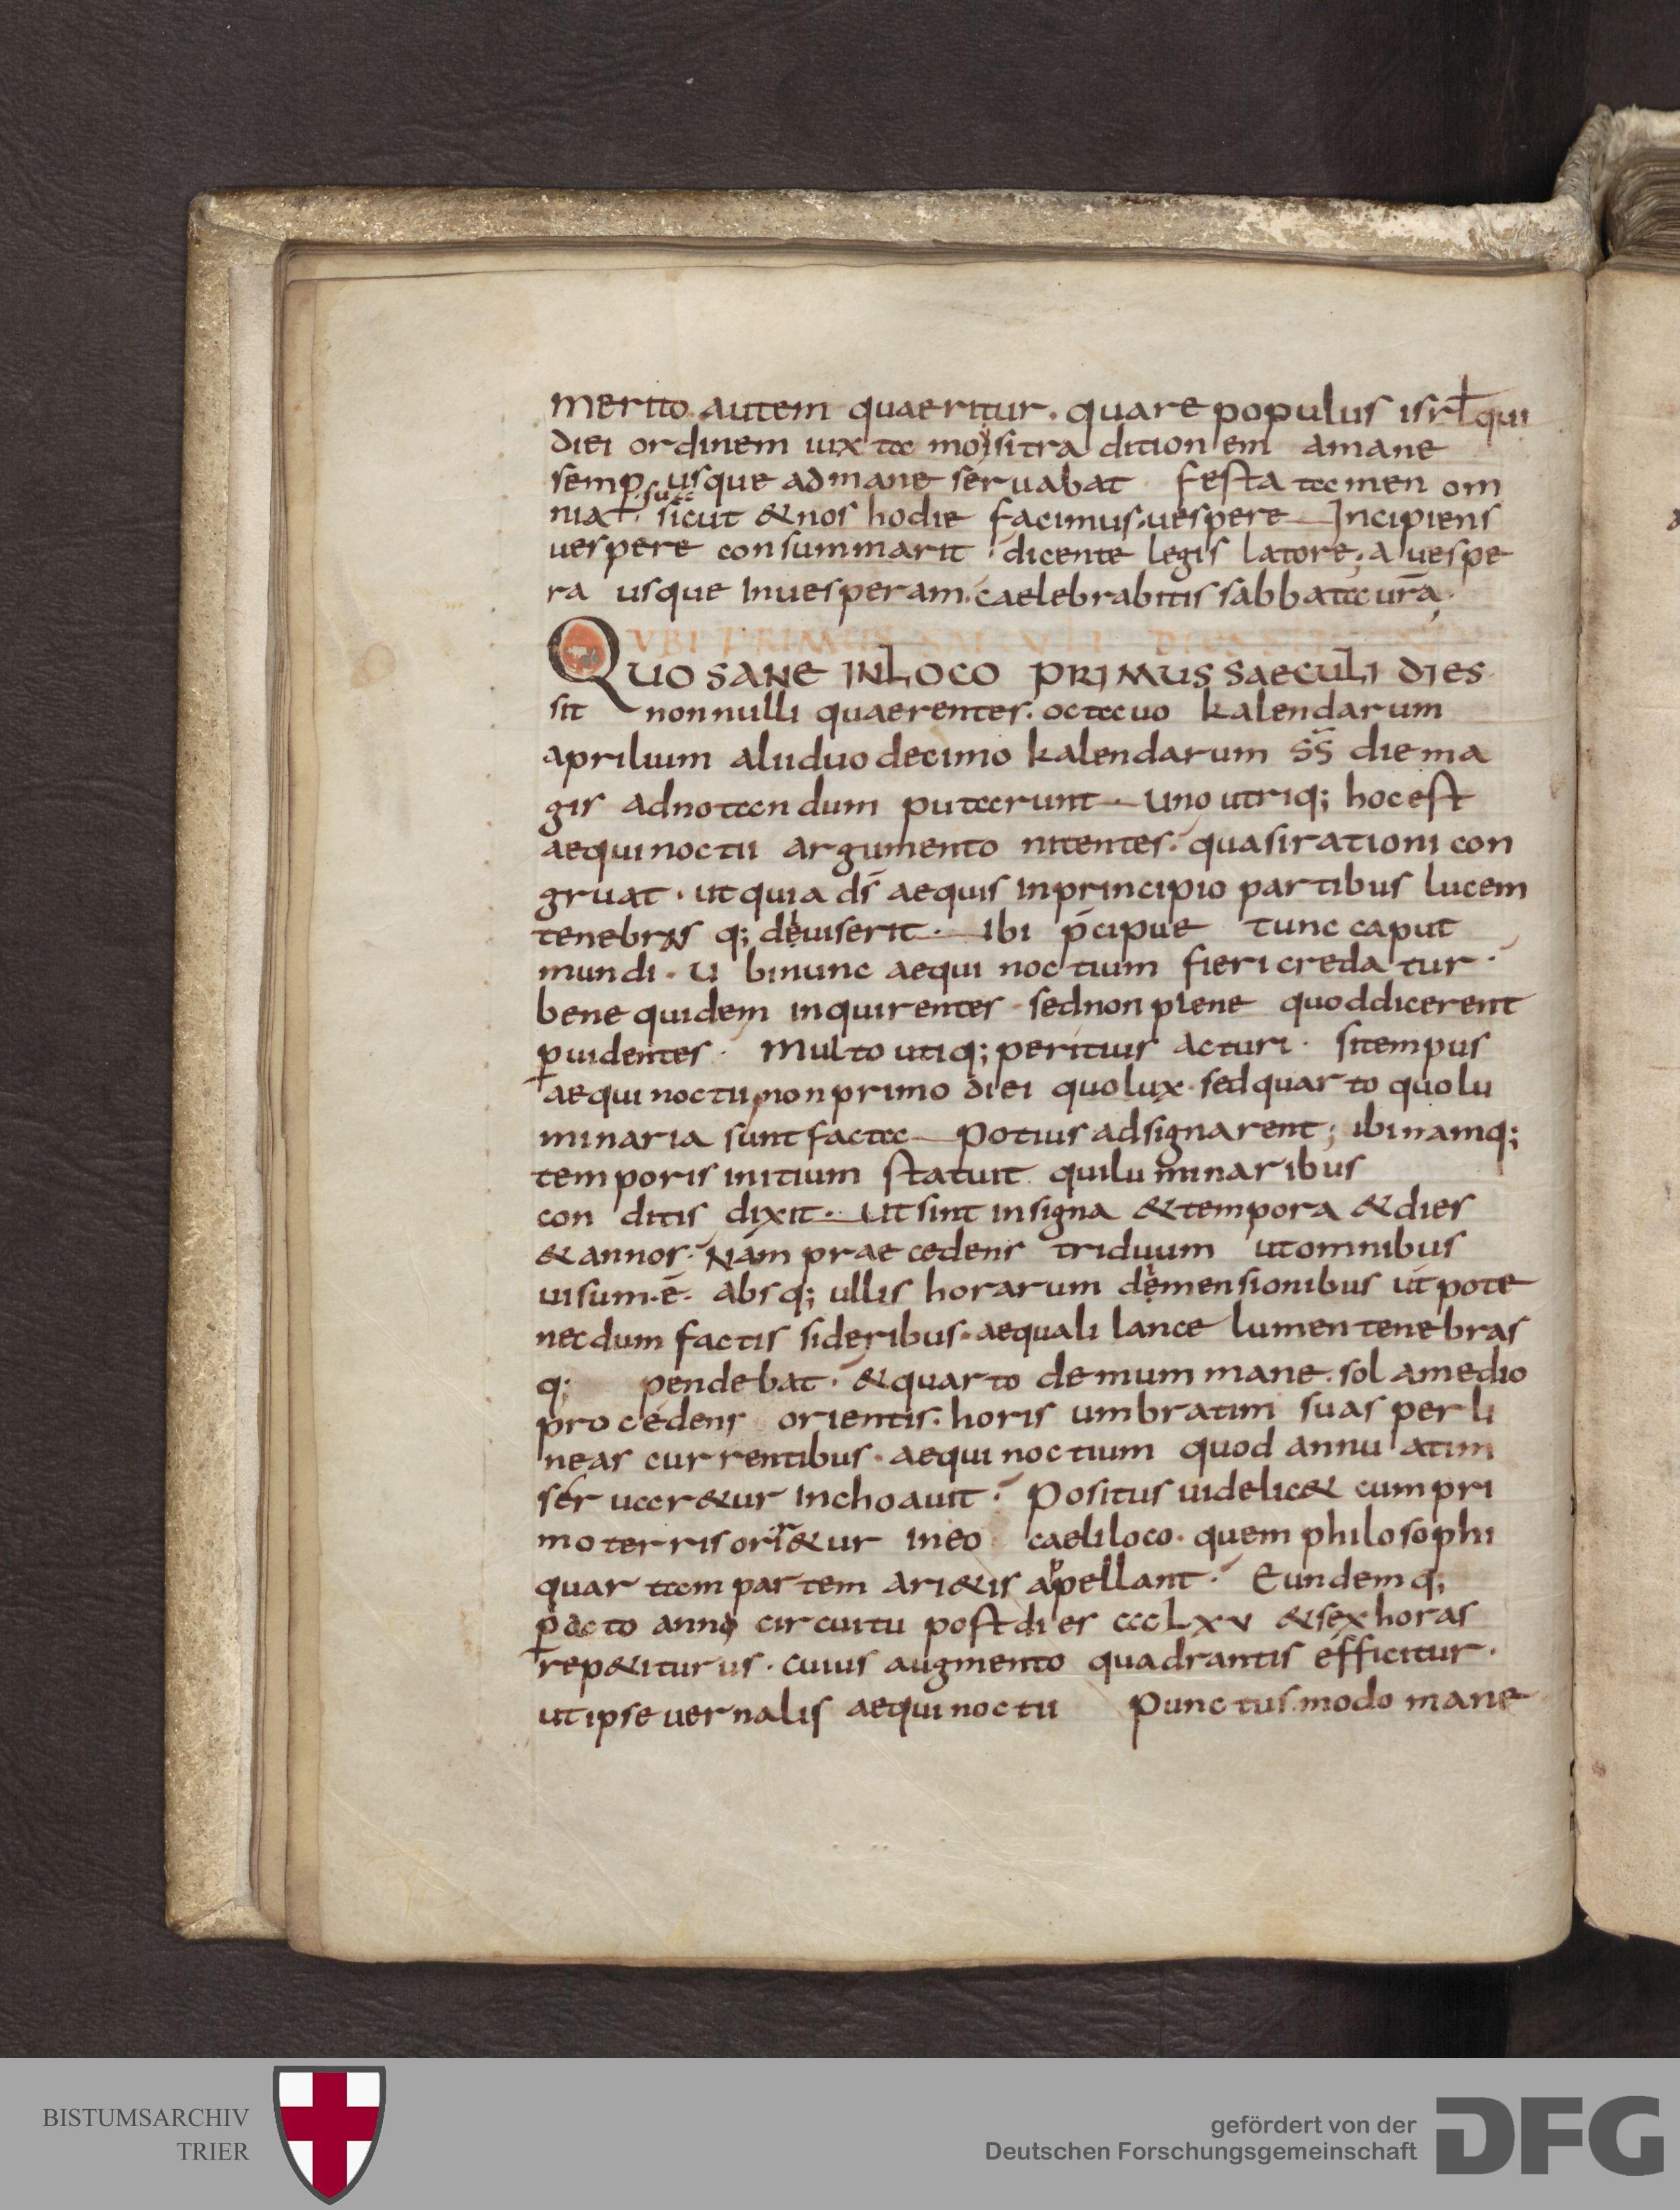 merito autem quaeritur. quare populus isrł qui
diei ordinem iuxta moysi traditionem amane
semp usque admane seruabat festa tamen om
nia sua sicut &nos hodie facimus. uespere Incipiens
uespere consummarit. dicente legis latore; a uespe
ra usque inuesperam. caelebrabitis sabbata ur̄a,
VBI PRIMUS DIES
QUO SANE INLOCO PRIMUS SAECULI DIES
sit nonnulli quaerentes. octauo kalendarum
aprilium alii duodecimo kalendarum die ma
gis adnotandum putarunt. Uno utriq; hocest
aequinoctii argumento nitentes. quasirationi con
gruat. utquia ds̄ aequis inprincipio partibus lucem
tenebras q; deuiserit. Ibi p̄cipue tunc caput
mundi. Ubinunc aequinoctium fieri credatur.
bene quidem inquirentes. sednon plene quoddicerent
ꝓuidentes. Multo utiq; peritius acturi. sitempus
aequinoctii non primo diei quo lux. sedquarto quo lu
minaria sunt facta potius adsignarent; ibi namq;
temporis initium statuit qui luminaribus
conditis dixit. Ut sint insigna &tempora &dies
&annos. Nam praecedens triduum utomnibus
uisum.ē. absq; ullis horarum demensionibus utpote
necdum factis sideribus. aequali lance lumen tenebras
q; pendebat. &quarto demum mane. sol amedio
procedens orientis. horis umbratim suas per li
neas currentibus. aequinoctium quod annuatim
seruar&ur inchoauit. Positus uidelic& cum pri
mo terris orir&ur ineo caeli loco. quem philosophi
quartam partem ari&is appellant. Eundemq;
ꝑacto anno circuitu post dies ccclxv &sex horas
rep&iturus. cuius augmento quadrantis efficitur.
ut ipse uernalis aequinoctii punctus. modo mane
BISTUMSARCHIV
TRIER
gefördert von der
Deutschen Forschungsgemeinschaft
DFG